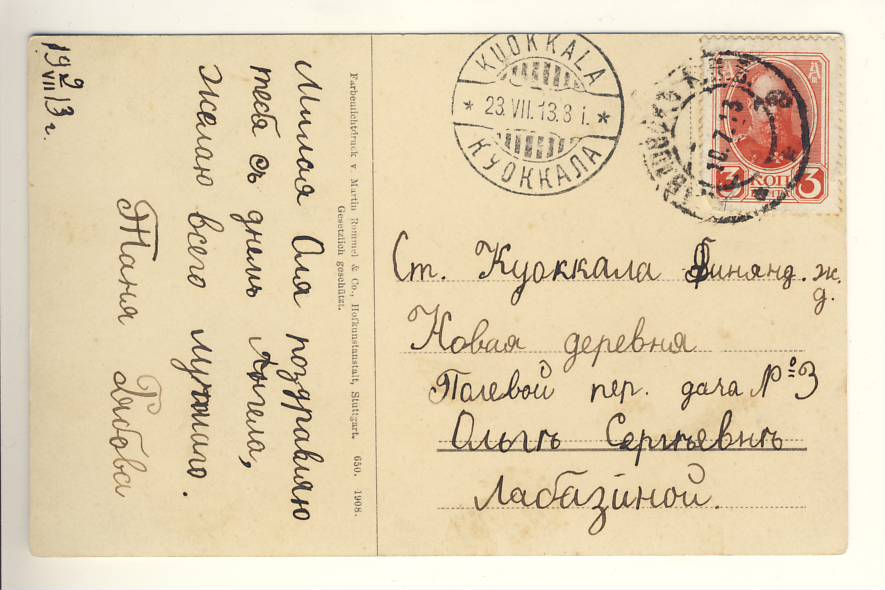 19 9/VII 13 г.
Милая Оля поздравляю
тебя съ днемъ Ангела,
желаю всего лучшаго.
Таня
Farbenlichtdruck v. Martin Rommel & Co., Hofkunstanstalt, Stuttgart. 650. 1908.
Gesetzlich geschützt.
KUOKKALA
23.VII.13.8 i.
КУОККАЛА
10.7.13
3 КОП 3
Ст. Куоккала Финянд. ж.
д.
Новая деревня
Полевой пер. дача № 3
Ольгѣ Сергѣевнѣ
Лабазиной.